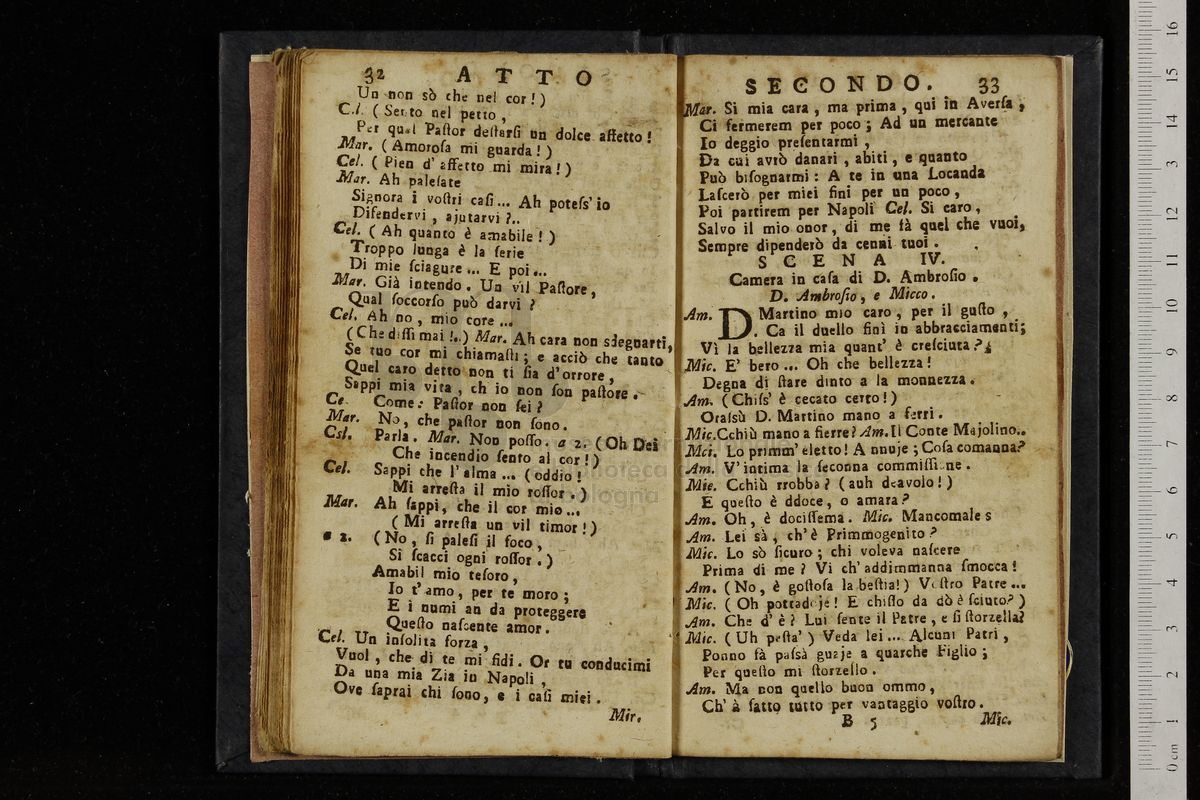 32 ATTO
Un non sò che nel cor!)
C.l. (Sento nel petto,
Per qual Paſtor deſtarſi un dolce affetto!
Mar. (Amoroſa mi guarda!)
Cel. (Pien d' affetto mi mira!)
Mar. Ah paleſate
Signora i voſtri caſi... Ah poteſs' io
Difendervi, ajutarvi?..
Cel. (Ah quanto è amabile!)
Troppo lunga è la ſerie
Di mie ſciagure... E poi...
Mar. Già intendo. Un vil Paſtore,
Qual ſoccorſo può darvi?
Cel. Ah no, mio core...
(Che diſſi mai!..) Mar. Ah cara non sdegnarti,
Se tuo cor mi chiamaſti; e acciò che tanto
Quel caro detto non ti ſia d'orrore,
Sappi mia vita, ch io non ſon paſtore.
Ce. Come: Paſtor non ſei?
Mar. No, che paſtor non ſono.
Csl. Parla. Mar. Non poſſo. a 2. (Oh Dei
Che incendio ſento al cor!)
Cel. Sappi che l'alma... (oddio!
Mi arreſta il mio roſſor.)
Mar. Ah ſappi, che il cor mio...
(Mi arreſta un vil timor!)
a 2. (No, ſi paleſi il foco,
Si ſcacci ogni roſſor.)
Amabil mio teſoro,
Io t'amo, per te moro;
E i numi an da proteggere
Queſto naſcente amor.
Cel. Un inſolita forza,
Vuol, che di te mi fidi. Or tu conducimi
Da una mia Zia in Napoli,
Ove ſaprai chi ſono, e i caſi miei.
Mir.
SECONDO. 33
Mar. Sì mia cara, ma prima, qui in Averſa,
Ci fermerem per poco; Ad un mercante
Io deggio preſentarmi,
Da cui avrò danari, abiti, e quanto
Può biſognarmi: A te in una Locanda
Laſcerò per miei fini per un poco,
Poi partirem per Napoli Cel. Sì caro,
Salvo il mio onor, di me fà quel che vuoi,
Sempre dipenderò da cenni tuoi.
SCENA IV.
Camera in caſa di D. Ambroſio.
D. Ambroſio, e Micco.
Am. D. Martino mio caro, per il guſto,
Ca il duello finì in abbracciamenti;
Vì la bellezza mia quant' è creſciuta?
Mic. E' bero... Oh che bellezza!
Degna di ſtare dinto a la monnezza.
Am. (Chiſs' è cecato certo!)
Oraſsù D. Martino mano a ferri.
Mic. Cchiù mano a fierre? Am. Il Conte Majolino..
Mci. Lo primm' eletto! A nnuje; Coſa comanna?
Am. V'intima la ſeconna commiſſione.
Mie. Cchiù rrobba? (auh deavolo!)
E queſto è ddoce, o amara?
Am. Oh, è dociſſema. Mic. Mancomale s
Am. Lei sà, ch'è Primmogenito?
Mic. Lo sò ſicuro; chi voleva naſcere
Prima di me? Vi ch'addimmanna ſmocca!
Am. (No, è goſtoſa la beſtia!) Voſtro Patre...
Mic. (Oh pottadoje! E chiſto da dò è ſciuto?)
Am. Che d'è? Lui ſente il Patre, e ſi ſtorzella?
Mic. (Uh peſta') Veda lei... Alcuni Patri,
Ponno fà paſsà guaje a quarche Figlio;
Per queſto mi ſtorzello.
Am. Ma non quello buon ommo,
Ch' à fatto tutto per vantaggio voſtro.
B 5 Mic.